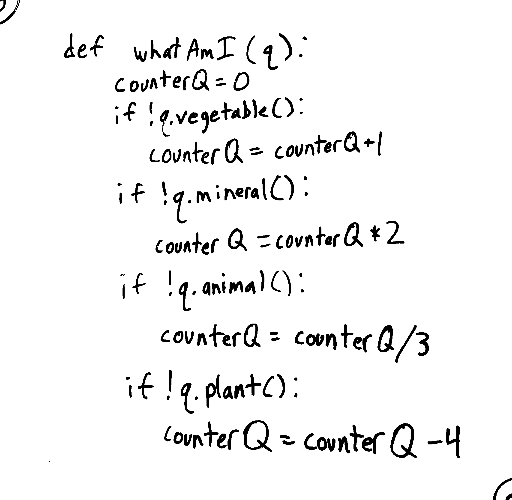 def whatAmI(q):
counterQ = 0
if !q.vegetable():
counterQ = counterQ+1
if !q.mineral():
counterQ = counterQ * 2
if !q.animal():
counterQ = counterQ/3
if !q.plant():
counterQ = counterQ -4